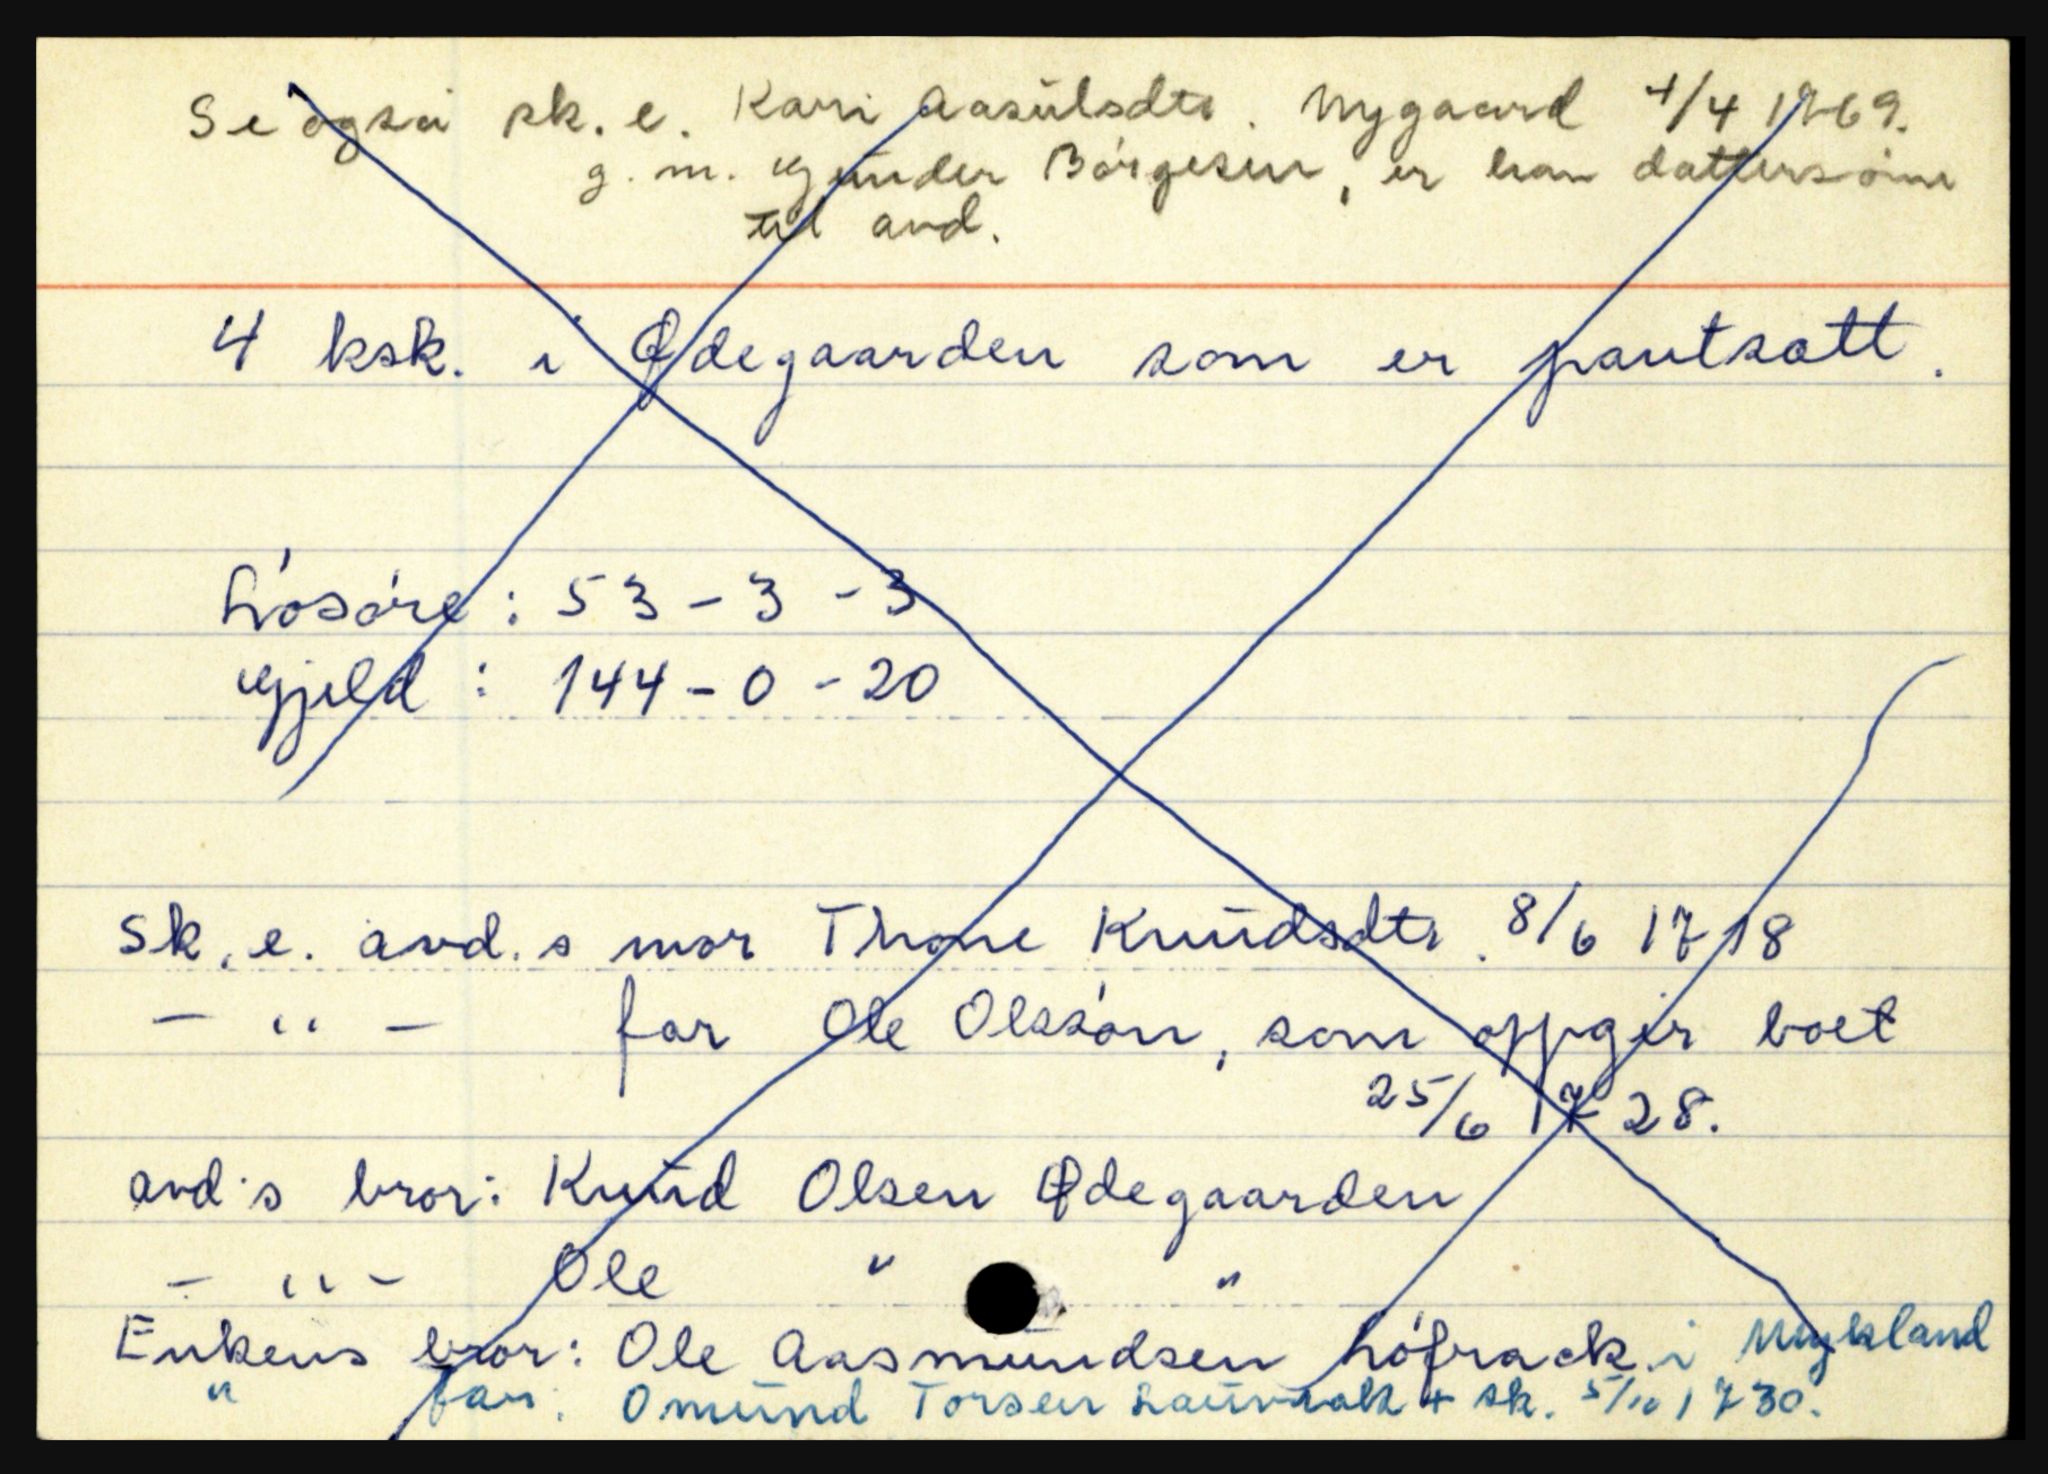 Se også sk. e. Kari Aasulsdtr. Nygaard 4/4 1769.
g. m. Gunder Börgesen, er han dattersönn
til avd.
4 ksk. i Ødegaarden som er pantsatt.
Lösöre: 53 - 3 - 3
Gjeld: 144 - 0 - 20
Sk. e. avd.s mor Thone Knudsdtr. 8/6 1718
- " - far Ole Olssön, som oppgir boet
25/6 1728.
avd's bror: Knud Olsen Ødegaarden
- " - Ole " "
Enkens bror: Ole Aasmundsen Löfrack i Mykland
" far: Omund Torsen Lauvrak + sk. 5/10 1730.